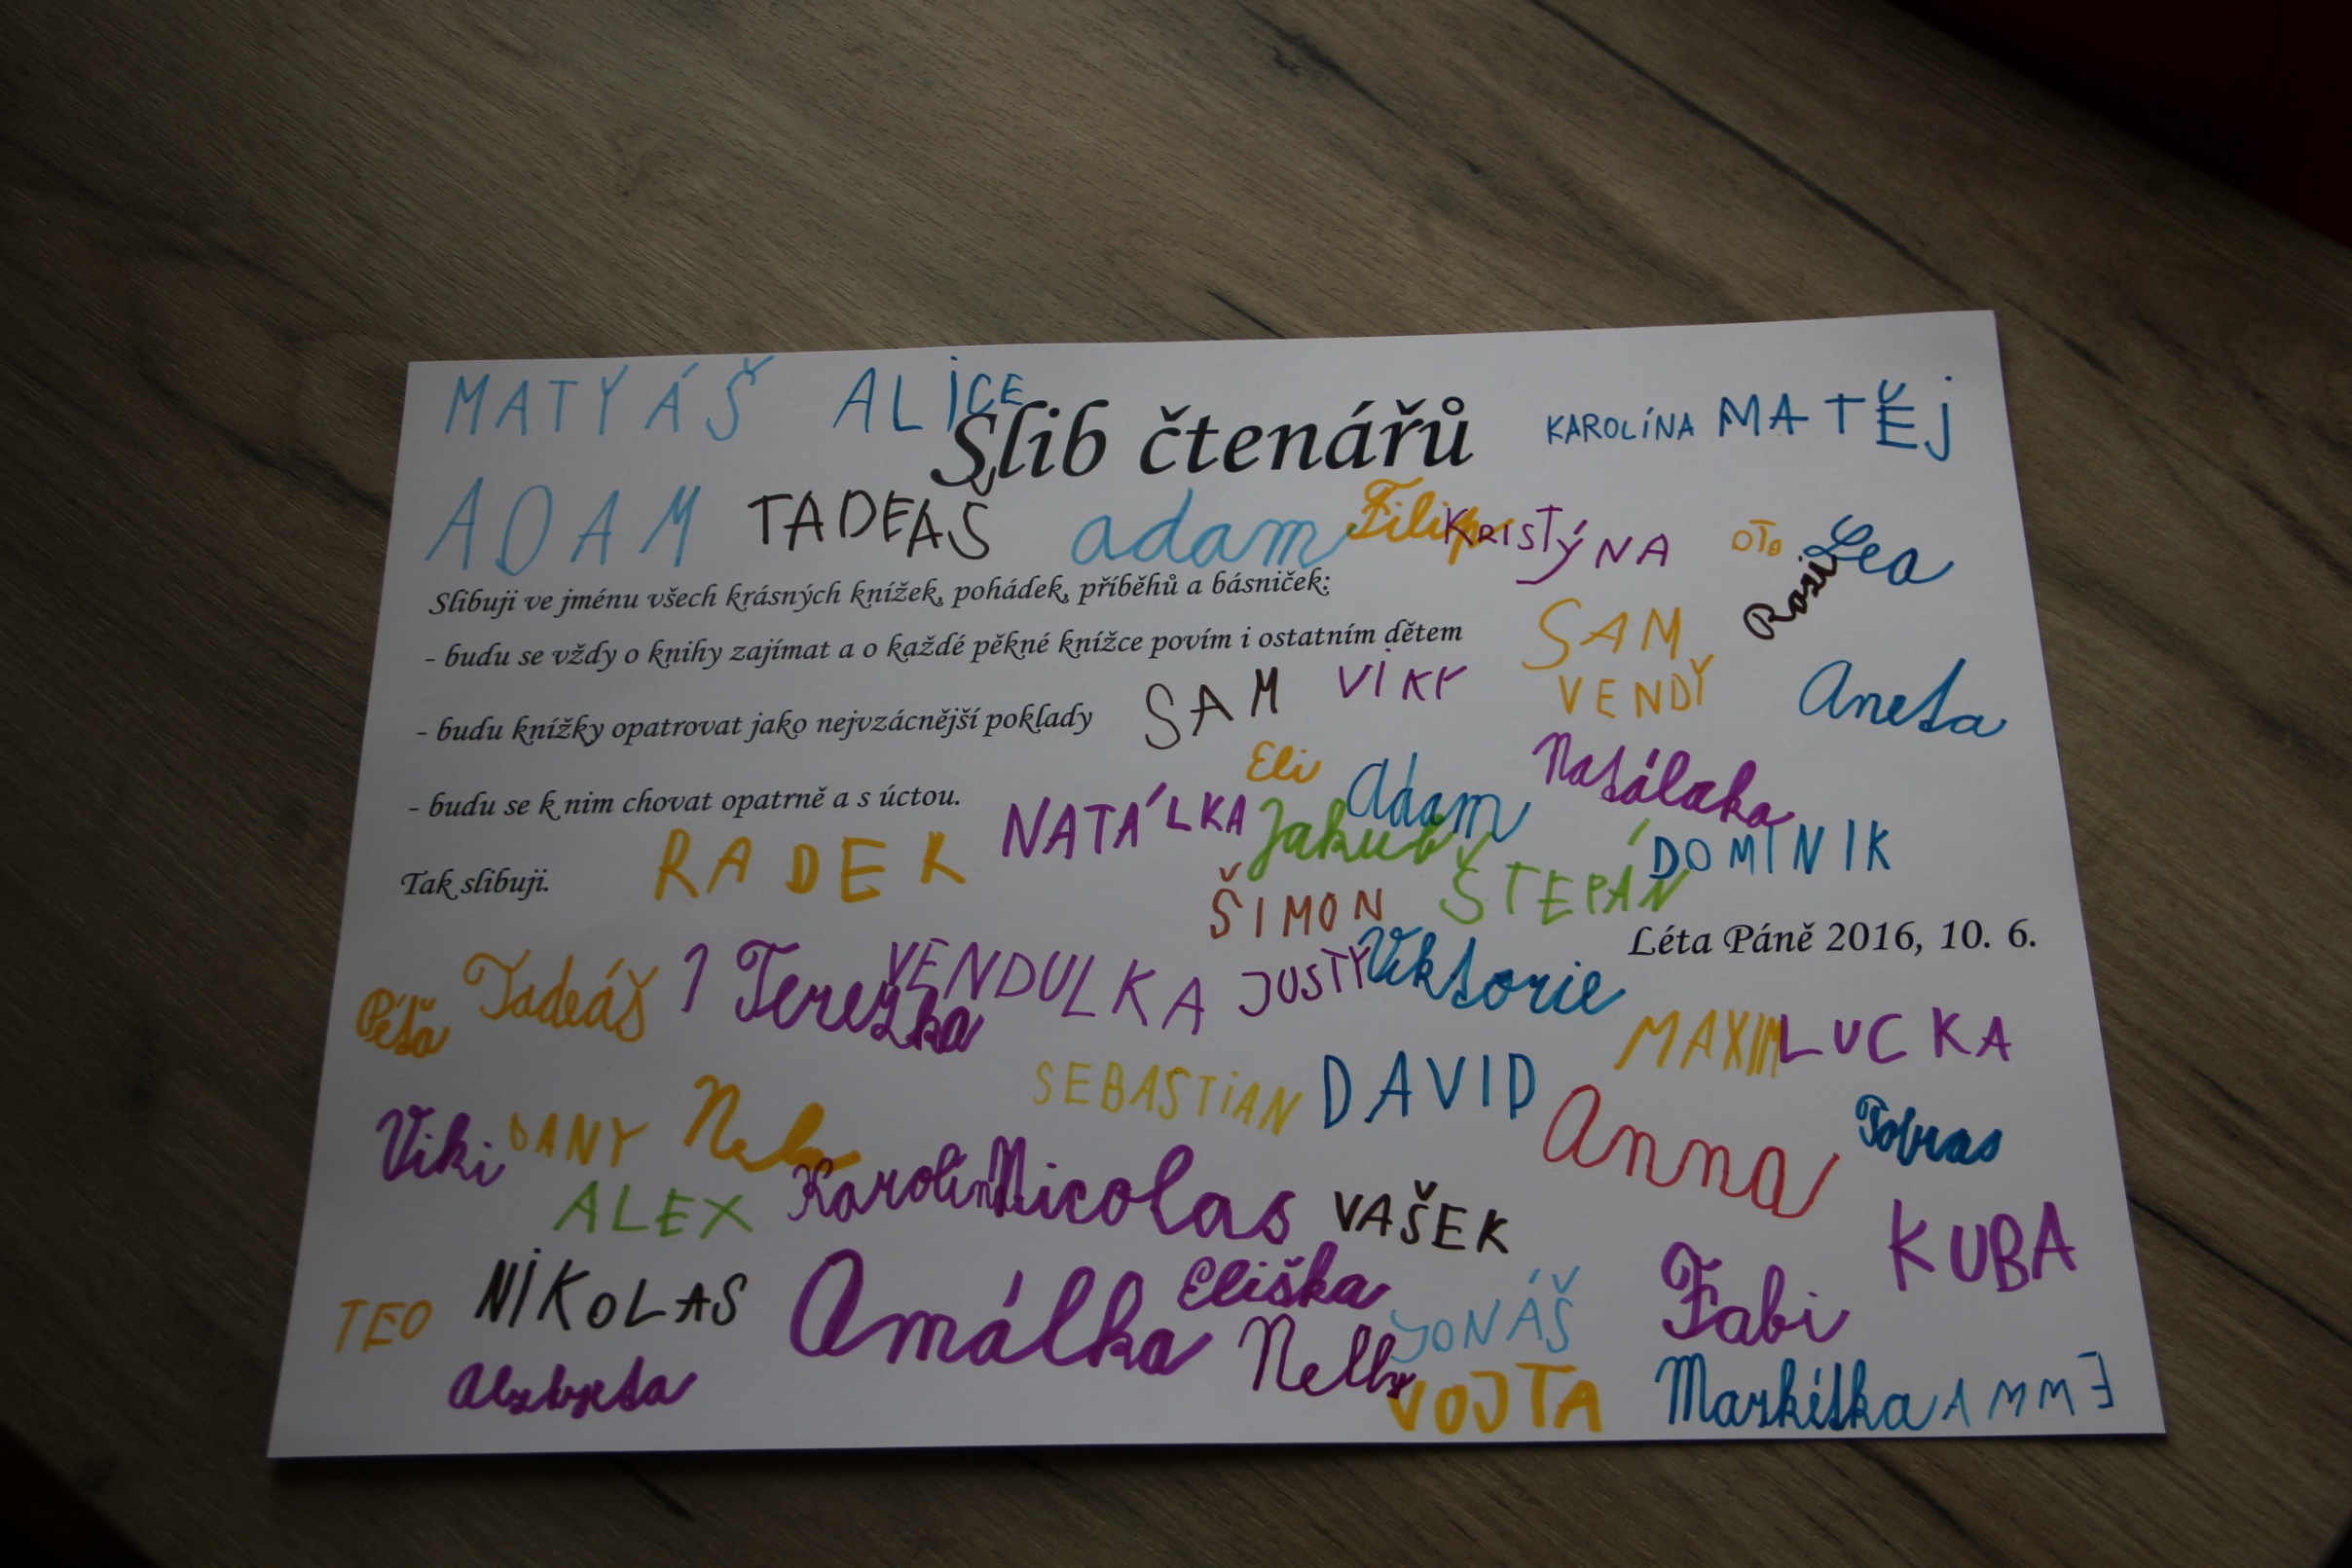 MATYÁŠ ALICE
Slib čtenářů
KAROLÍNA MATĚJ
ADAM TADEÁŠ adam Filip KRISTÝNA OTO Leo
Rozi
Slibuji ve jménu všech krásných knížek, pohádek, příběhů a básniček:
SAM
- budu se vždy o knihy zajímat a o každé pěkné knížce povím i ostatním dětem
SAM VIKY VENDY Aneta
- budu knížky opatrovat jako nejvzácnější poklady
Eli Adam Natálaka
- budu se k nim chovat opatrně a s úctou.
NATÁLKA Jakub DOMINIK
Tak slibuji.
RADEK ŠIMON ŠTĚPÁN
Léta Páně 2016, 10. 6.
Péťa Tadeáš Terezka VENDULKA JUSTY Viktorie
MAXIM LUCKA
SEBASTIAN DAVID Anna Tobias
Viki DANY
ALEX Karolína Nicolas VAŠEK KUBA
TEO NIKOLAS Amálka Eliška JONÁŠ Fabi
Alzbjeta Nelly VOJTA Markétka AMME